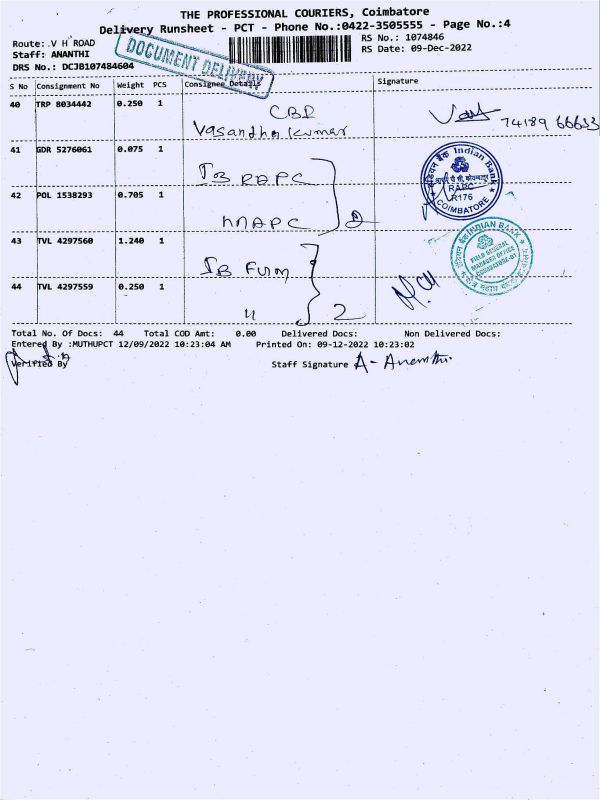 THE PROFESSIONAL COURIERS, Coimbatore
Delivery Runsheet - PCT - Phone No.:0422-3505555 - Page No.:4
Route: V H ROAD
RS No.: 1074846
Staff: ANANTHI
RS Date: 09-Dec-2022
DRS No.: DCJB107484604
DOCUMENT DELIVERY
S No Consignment No Weight PCS Consignee Details Signature
40 TRP 8034442 0.250 1 CBE
Vasantha kumar 74189 66633
41 GDR 5276061 0.075 1 IB RAPC
Indian Bank
RAPC
R176
COIMBATORE
42 POL 1538293 0.705 1 MAPC 2
43 TVL 4297560 1.240 1 IB FGM
इंडियन बैंक INDIAN BANK
FIELD GENERAL
MANAGER OFFICE
COIMBATORE-01
44 TVL 4297559 0.250 1 " 2
Total No. Of Docs: 44 Total COD Amt: 0.00 Delivered Docs: Non Delivered Docs:
Entered By :MUTHUPCT 12/09/2022 10:23:04 AM Printed On: 09-12-2022 10:23:02
Verified By Staff Signature A- Ananthi